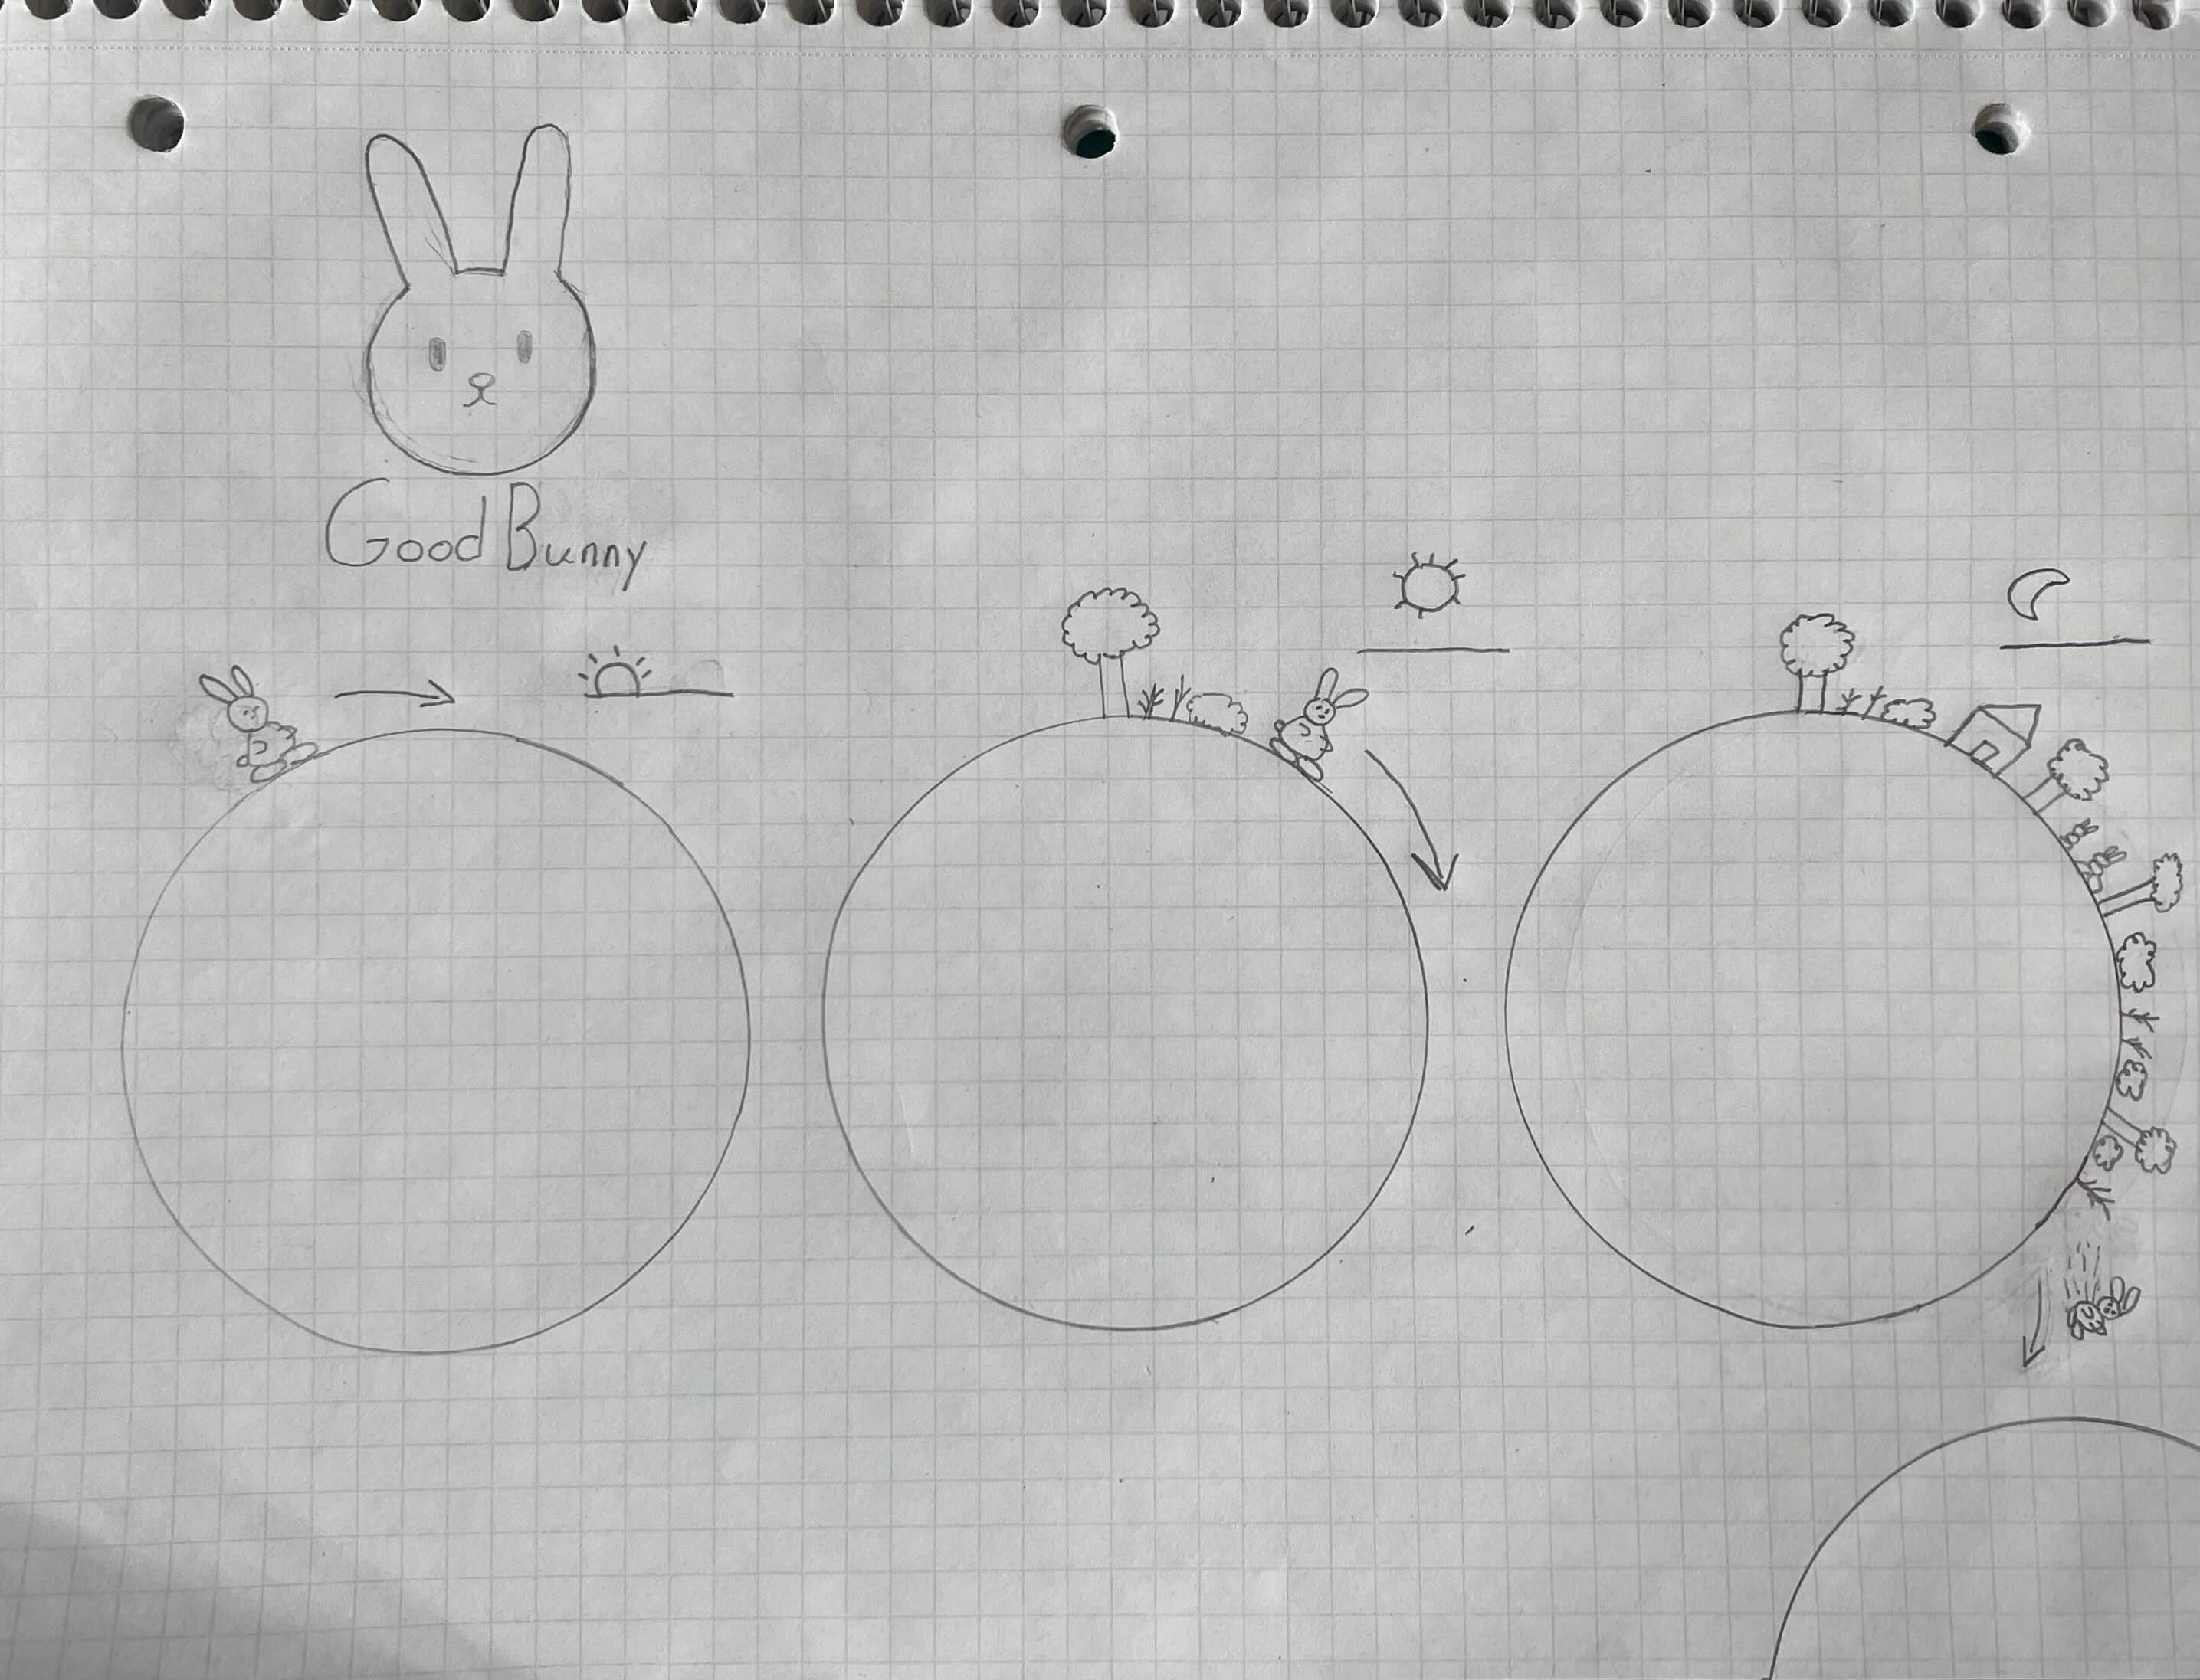 Good Bunny